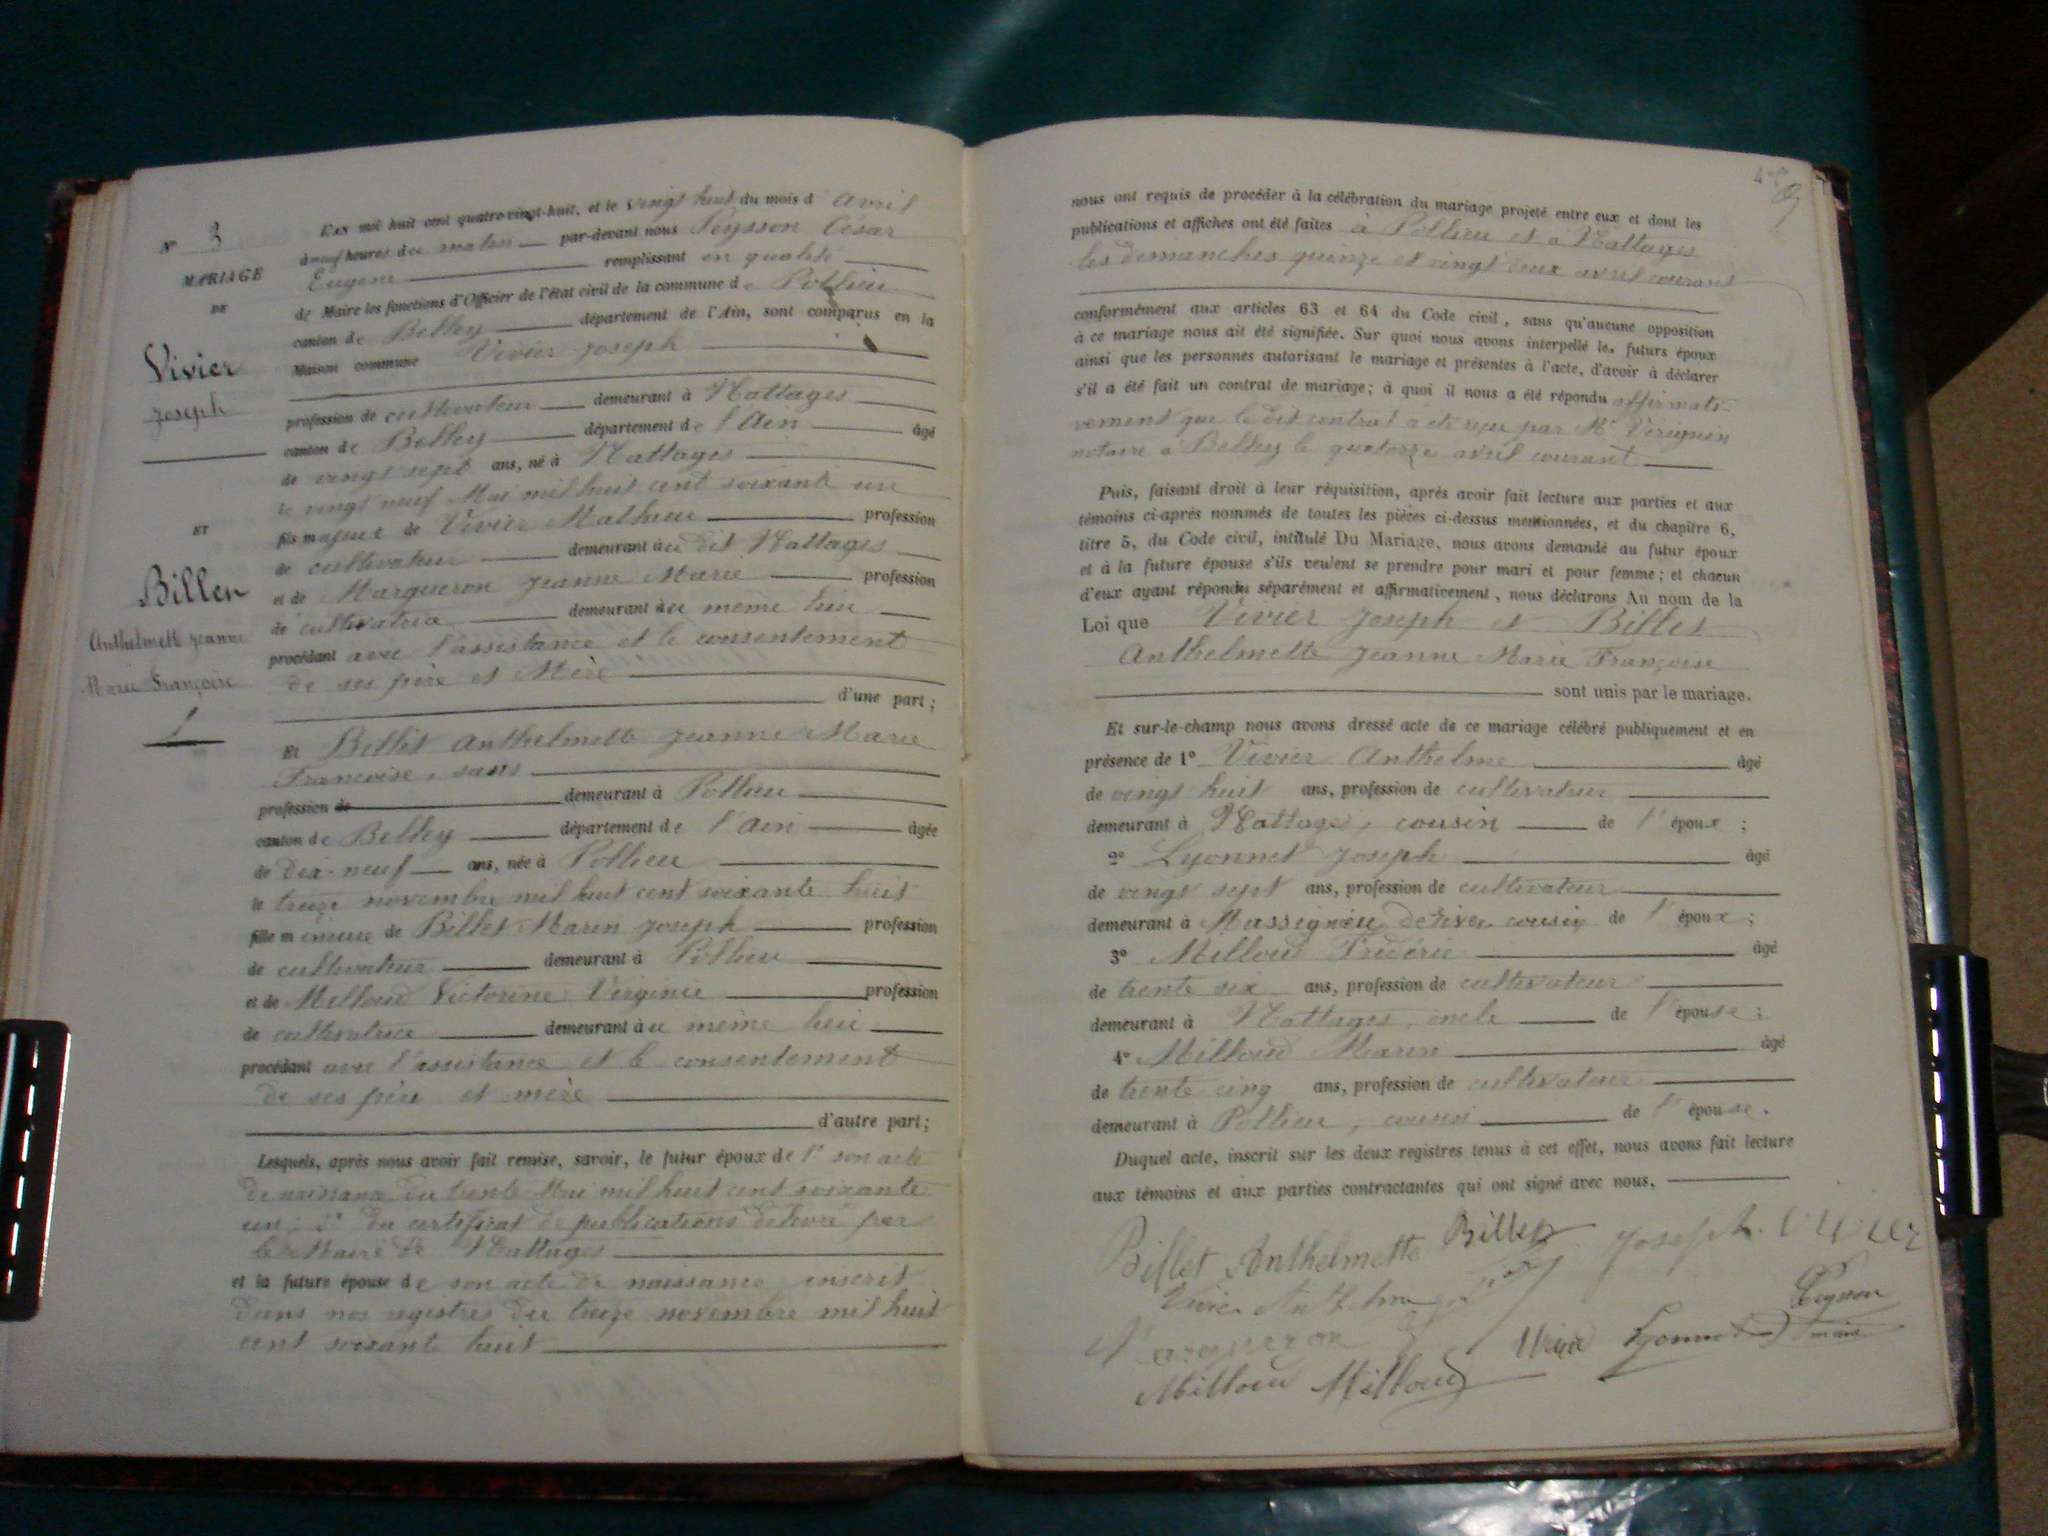 N° 3
MARIAGE
DE
Vivier
Joseph
ET
Billet
Anthelmette Jeanne
Marie Françoise
L'AN mil huit cent quatre-vingt-huit, et le vingt huit du mois d'avril
à neuf heures du matin par-devant nous Peysson César
Eugène remplissant en qualité
de Maire les fonctions d'Officier de l'état civil de la commune de Pollieu
canton de Belley département de l'Ain, sont comparus en la
Maison commune Vivier Joseph
profession de cultivateur demeurant à Nattages
canton de Belley département de l'Ain âgé
de vingt sept ans, né à Nattages
le vingt neuf Mai mil huit cent soixante un
fils majeur de Vivier Mathieu profession
de cultivateur demeurant au dit Nattages
et de Margueron Jeanne Marie profession
de cultivatrice demeurant au même lieu
procédant avec l'assistance et le consentement
de ses père et Mère
d'une part;
Et Billet Anthelmette Jeanne Marie
Françoise, sans
profession de demeurant à Pollieu
canton de Belley département de l'Ain âgée
de dix-neuf ans, née à Pollieu
le treize novembre mil huit cent soixante huit
fille mineure de Billet Marin Joseph profession
de cultivateur demeurant à Pollieu
et de Milloud Victorine Virginie profession
de cultivatrice demeurant au même lieu
procédant avec l'assistance et le consentement
de ses père et mère
d'autre part;
Lesquels, après nous avoir fait remise, savoir, le futur époux de 1° son acte
de naissance du trente Mai mil huit cent soixante
un; 2° du certificat de publications délivré par
le Maire de Nattages
et la future épouse de son acte de naissance inscrit
dans nos registres du treize novembre mil huit
cent soixante huit
nous ont requis de procéder à la célébration du mariage projeté entre eux et dont les
publications et affiches ont été faites à Pollieu et à Nattages
les dimanches quinze et vingt deux avril courant
conformément aux articles 63 et 64 du Code civil, sans qu'aucune opposition
à ce mariage nous ait été signifiée. Sur quoi nous avons interpellé les futurs époux
ainsi que les personnes autorisant le mariage et présentes à l'acte, d'avoir à déclarer
s'il a été fait un contrat de mariage; à quoi il nous a été répondu affirmati-
vement que le dit contrat a été reçu par Me
notaire à Belley le quatorze avril courant
Puis, faisant droit à leur réquisition, après avoir fait lecture aux parties et aux
témoins ci-après nommés de toutes les pièces ci-dessus mentionnées, et du chapitre 6,
titre 5, du Code civil, intitulé Du Mariage, nous avons demandé au futur époux
et à la future épouse s'ils veulent se prendre pour mari et pour femme; et chacun
d'eux ayant répondu séparément et affirmativement, nous déclarons Au nom de la
Loi que Vivier Joseph et Billet
Anthelmette Jeanne Marie Françoise
sont unis par le mariage.
Et sur-le-champ nous avons dressé acte de ce mariage célébré publiquement et en
présence de 1° Vivier Anthelme âgé
de vingt huit ans, profession de cultivateur
demeurant à Nattages, cousin de l'époux;
2° Lyonnet Joseph âgé
de vingt sept ans, profession de cultivateur
demeurant à Massignieu de rives cousin de l'époux;
3° Milloud Frédéric âgé
de trente six ans, profession de cultivateur
demeurant à Nattages, oncle de l'épouse;
4° Milloud Marin âgé
de trente cinq ans, profession de cultivateur
demeurant à Pollieu, cousin de l'épouse.
Duquel acte, inscrit sur les deux registres tenus à cet effet, nous avons fait lecture
aux témoins et aux parties contractantes qui ont signé avec nous,
Billet Anthelmette Billet Joseph Vivier
Vivier Anthelme
Margueron Vivier Lyonnet Peysson
maire
Milloud Milloud